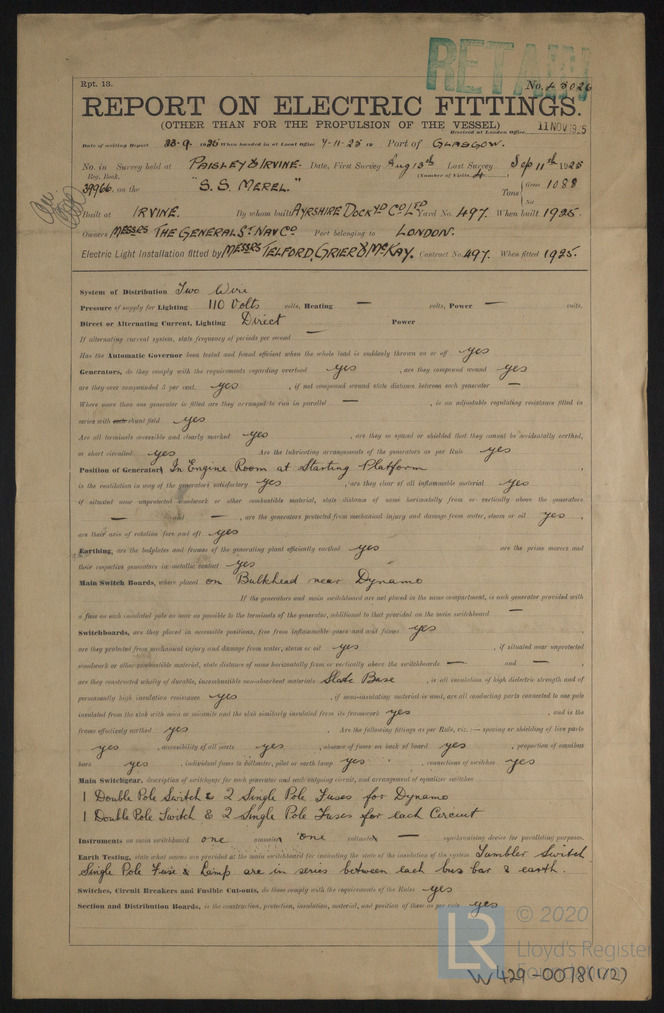 RETAIN
Rpt. 13.
No. 45026
REPORT ON ELECTRIC FITTINGS.
(OTHER THAN FOR THE PROPULSION OF THE VESSEL)
Received at London Office 11 NOV 1925
Date of writing Report 23.9.1925 When handed in at Local Office 7-11-25 19 Port of GLASGOW.
No. in Survey held at PAISLEY & IRVINE. Date, First Survey Aug 13th Last Survey Sep 11th 1925
Reg. Book. (Number of Visits 4)
39966 on the "S.S. MEREL." Tons { Gross 1088
Net
Built at IRVINE. By whom built AYRSHIRE DOCKYD CO LTD Yard No. 497. When built 1925.
Owners MESSRS THE GENERAL ST NAV CO Port belonging to LONDON.
Electric Light Installation fitted by MESSRS TELFORD, GRIER & McKAY. Contract No. 497. When fitted 1925.
System of Distribution Two Wire
Pressure of supply for Lighting 110 Volts volts, Heating — volts, Power — volts.
Direct or Alternating Current, Lighting Direct Power
If alternating current system, state frequency of periods per second —
Has the Automatic Governor been tested and found efficient when the whole load is suddenly thrown on or off yes
Generators, do they comply with the requirements regarding overload yes , are they compound wound yes
are they over compounded 5 per cent. yes , if not compound wound state distance between each generator —
Where more than one generator is fitted are they arranged to run in parallel — , is an adjustable regulating resistance fitted in
series with each shunt field yes
Are all terminals accessible and clearly marked yes , are they so spaced or shielded that they cannot be accidentally earthed,
or short circuited yes Are the lubricating arrangements of the generators as per Rule yes
Position of Generators In Engine Room at Starting Platform ,
is the ventilation in way of the generators satisfactory yes , are they clear of all inflammable material yes
if situated near unprotected woodwork or other combustible material, state distance of same horizontally from or vertically above the generators
— and — , are the generators protected from mechanical injury and damage from water, steam or oil yes ,
are their axis of rotation fore and aft yes
Earthing, are the bedplates and frames of the generating plant efficiently earthed yes are the prime movers and
their respective generators in metallic contact yes
Main Switch Boards, where placed on Bulkhead near Dynamo
If the generators and main switchboard are not placed in the same compartment, is each generator provided with
a fuse on each insulated pole as near as possible to the terminals of the generator, additional to that provided on the main switchboard —
Switchboards, are they placed in accessible positions, free from inflammable gases and acid fumes yes ,
are they protected from mechanical injury and damage from water, steam or oil yes , if situated near unprotected
woodwork or other combustible material, state distance of same horizontally from or vertically above the switchboards — and — ,
are they constructed wholly of durable, incombustible non-absorbent materials Slate Base , is all insulation of high dielectric strength and of
permanently high insulation resistance yes , if semi-insulating material is used, are all conducting parts connected to one pole
insulated from the slab with mica or micanite and the slab similarly insulated from its framework yes , and is the
frame effectively earthed yes . Are the following fittings as per Rule, viz. :— spacing or shielding of live parts
yes , accessibility of all parts yes , absence of fuses on back of board yes , proportion of omnibus
bars yes , individual fuses to voltmeter, pilot or earth lamp yes , connections of switches yes
Main Switchgear, description of switchgear for each generator and each outgoing circuit, and arrangement of equalizer switches
1 Double Pole Switch & 2 Single Pole Fuses for Dynamo
1 Double Pole Switch & 2 Single Pole Fuses for each Circuit
Instruments on main switchboard one ammeter one voltmeter — synchronising device for paralleling purposes.
Earth Testing, state what means are provided at the main switchboard for indicating the state of the insulation of the system Tumbler Switch
Single Pole Fuse & Lamp are in series between each bus bar & earth.
Switches, Circuit Breakers and Fusible Cut-outs, do these comply with the requirements of the Rules yes
Section and Distribution Boards, is the construction, protection, insulation, material, and position of these as per rule yes
© 2020
LR Lloyd's Register
Foundation
W429-0078(1/2)